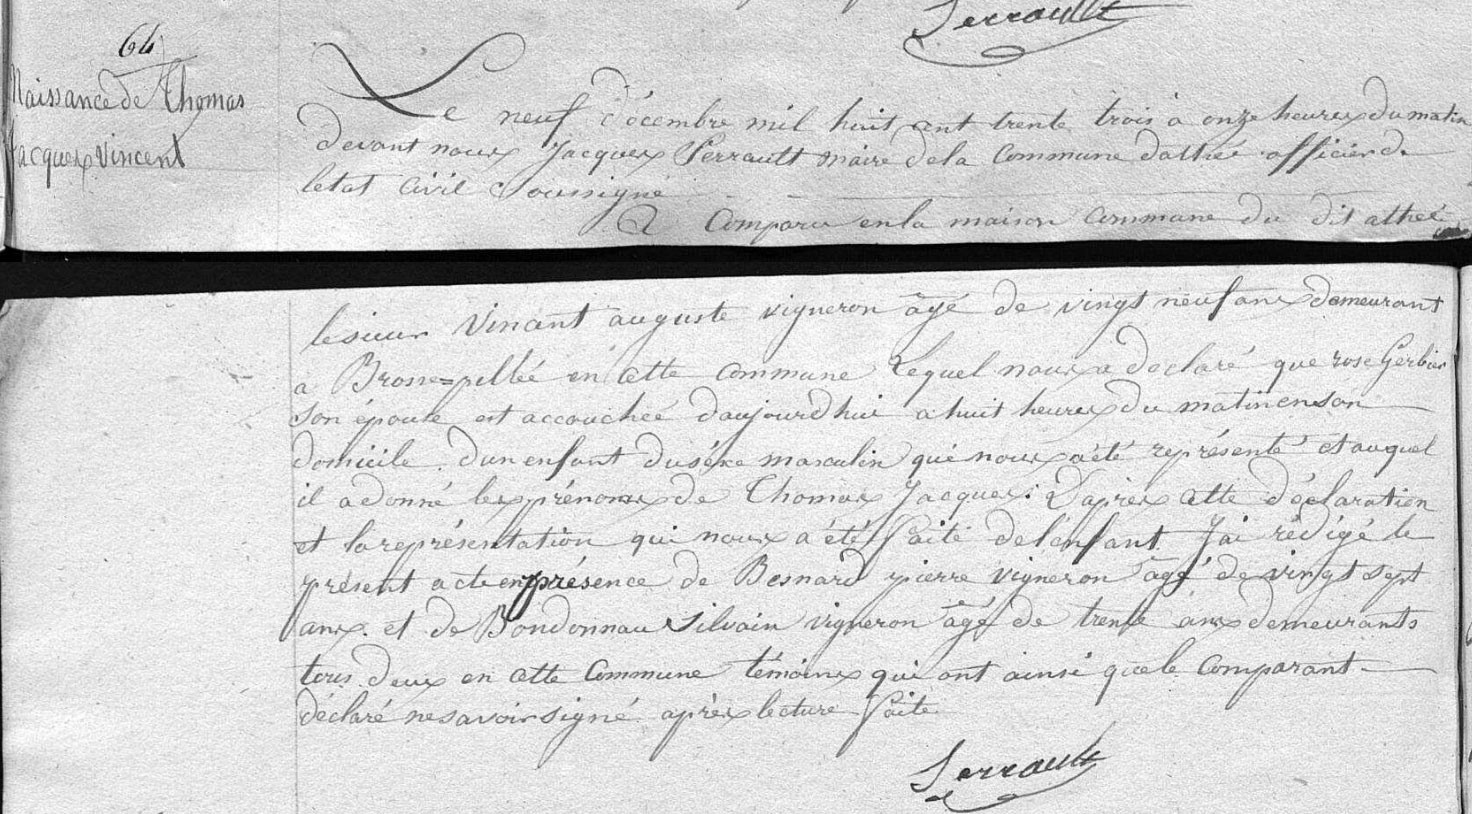 Perrault
64
Naissance de Thomas
Jacques Vincent
Le neuf décembre mil huit cent trente trois à onze heures du matin
devant nous Jacques Perrault maire de la Commune dathée officier de
letat Civil Soussigné
A Comparu en la maison Commune du dit athée
le sieur Vincent auguste vigneron âgé de vingt neuf ans demeurant
a Brosse=pellée en cette commune Lequel nous a declaré que rose Gerbier
Son épouse est accouchée daujourdhui a huit heures du matin en son
domicile dun enfant du séxe masculin qui nous a été représenté et auquel
il a donné les prénoms de Thomas Jacques: Dapres cette déclaration
et la représentation qui nous a été faite de lénfant Jai rédigé le
présent acte en présence de Besnard pierre vigneron âgé de vingt sept
ans et de Bondonnau Silvain vigneron âgé de trente ans demeurants
tous deux en cette Commune témoins qui ont ainsi que le Comparant
déclaré ne savoir signé après lecture faite
Perrault